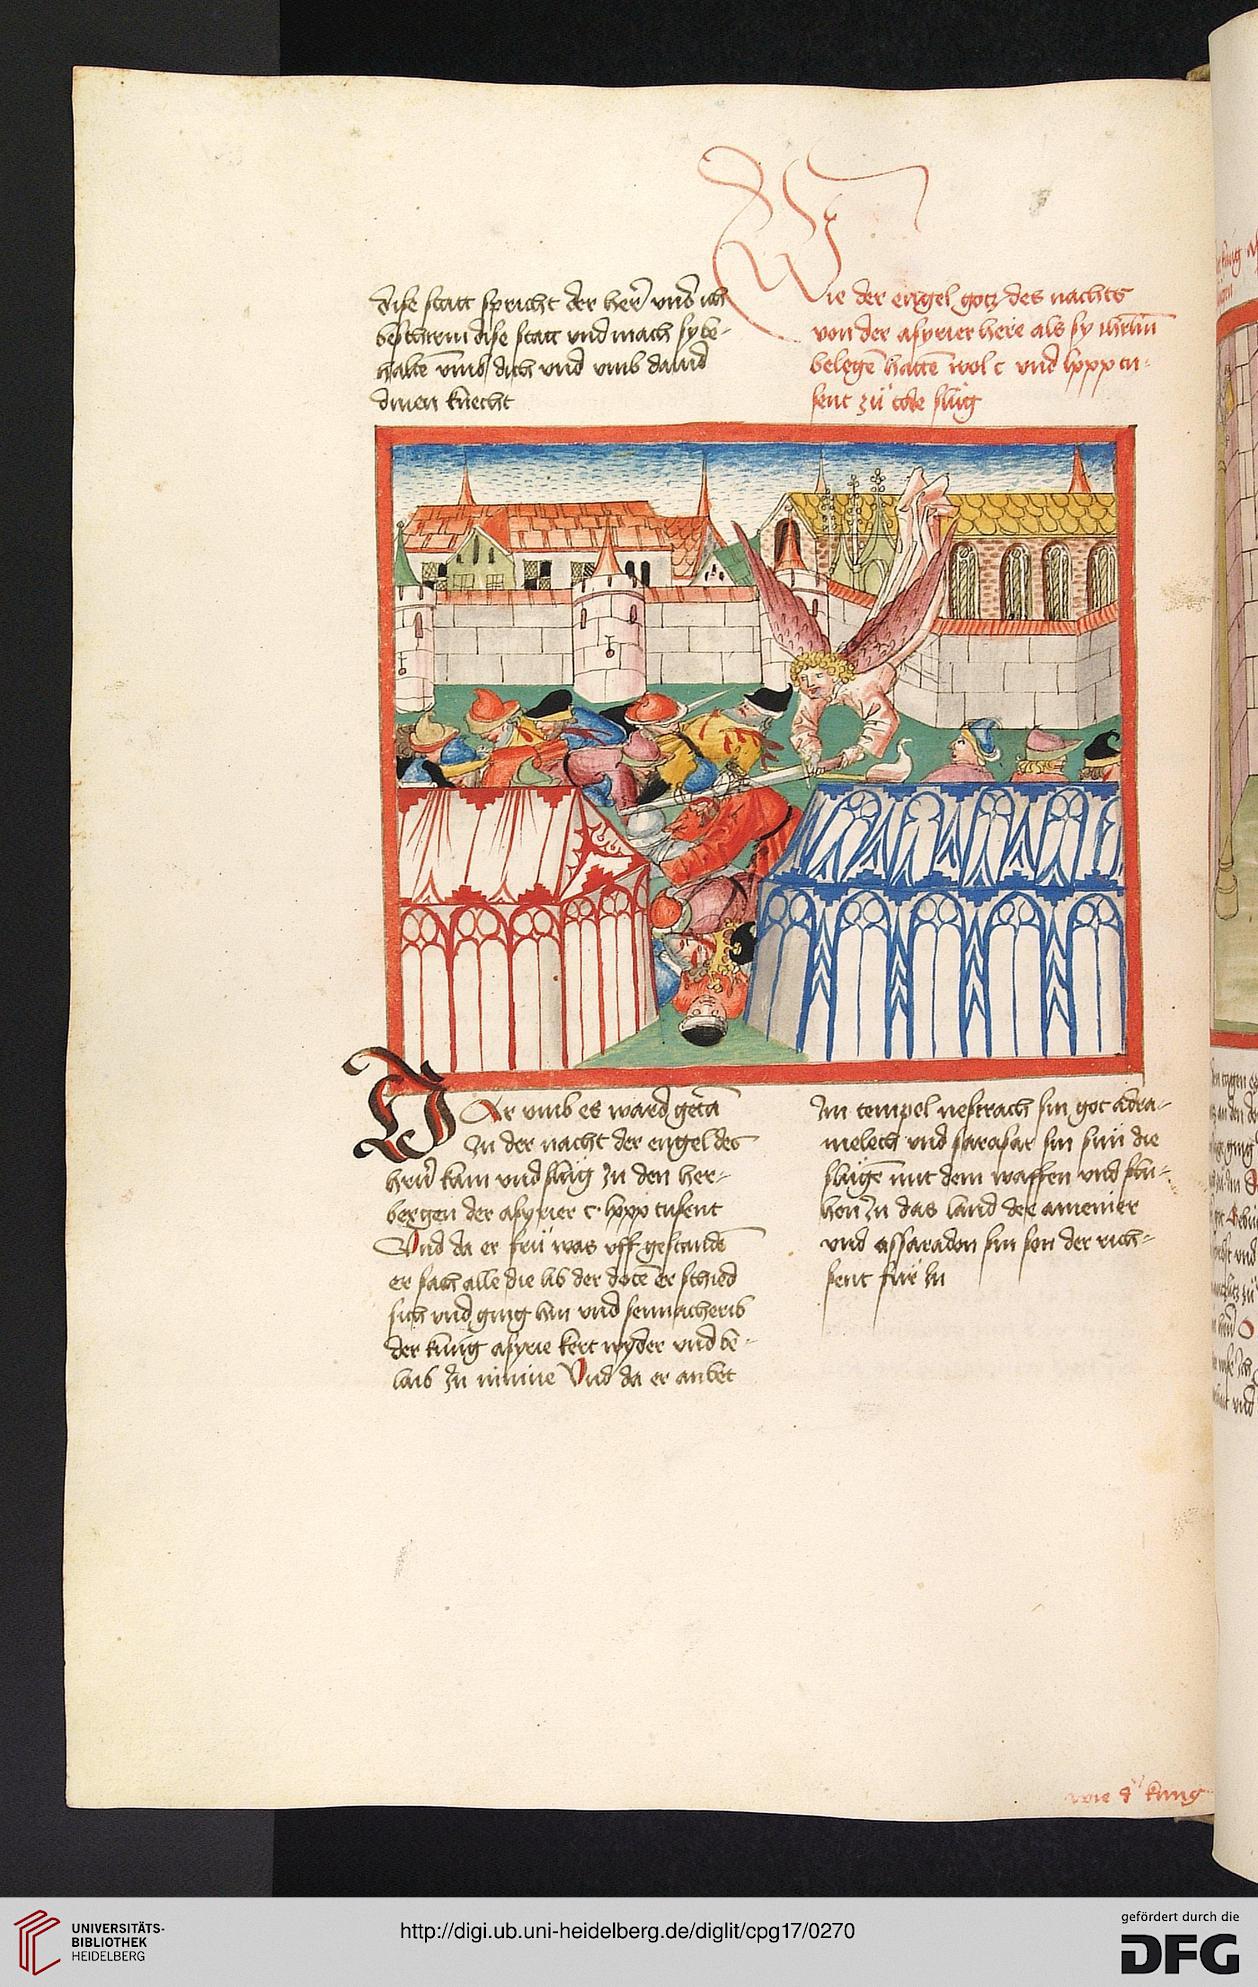 dise statt spricht der her̄ vnd ich
beschirm dise statt vnd mach sy be-
halte͞ vmb dich vnd vmb dauid
dinen knecht
Wie der engel gotz des nachts
von der asyrier here als sy ihrl̄m
belege͞ hatte͞ wol c vnd lxxx tu-
sent zü tode slüg
DAr vmb es ward geta͞
In der nacht der engel des
her̄n kam vnd slüg In den her-
bergen der asyrier c · lxxx tusent
Vnd da er frü was vff gestande͞
er sach alle die lib der dote͞ Er schied
sich vnd ging hin vnd sennacherib
der küng asyrie kert wyder vnd be-
laib In ninive Vnd da er anbet
Im tempel nestrach sin got adra-
melech vnd sarasar sin sün die
slüge͞ mit dem waffen vnd
In das land der armenier
vnd assaradon sin son der rich-
sent für In
wie d' küng
UNIVERSITÄTS-
BIBLIOTHEK
HEIDELBERG
http://digi.ub.uni-heidelberg.de/diglit/cpg17/0270
gefördert durch die
DFG